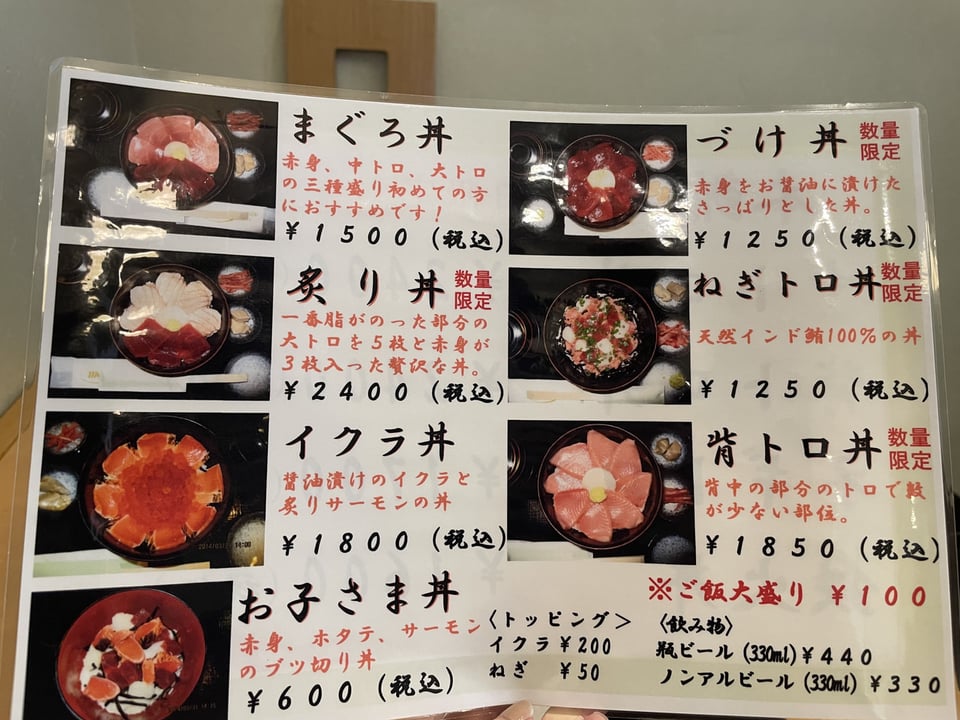 まぐろ丼
赤身、中トロ、大トロ
の三種盛り初めての方
におすすめです！
￥1500（税込）
炙り丼 数量限定
一番脂がのった部分の
大トロを5枚と赤身が
3枚入った贅沢な丼。
￥2400（税込）
イクラ丼
醤油漬けのイクラと
炙りサーモンの丼
￥1800（税込）
お子さま丼
赤身、ホタテ、サーモン
のブツ切り丼
￥600（税込）
づけ丼 数量限定
赤身をお醤油に漬けた
さっぱりとした丼。
￥1250（税込）
ねぎトロ丼 数量限定
天然インド鮪100%の丼
￥1250（税込）
背トロ丼 数量限定
背中の部分のトロで
が少ない部位。
￥1850（税込）
※ご飯大盛り ￥100
〈トッピング〉
イクラ￥200
ねぎ ￥50
〈飲み物〉
瓶ビール (330ml)￥440
ノンアルビール (330ml) ￥330